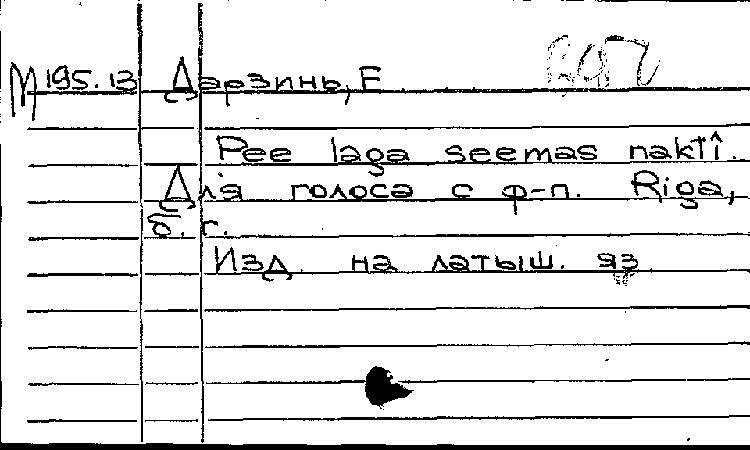 М 195.13 Дарзинь, Е
Pee laga seemas naktî.
Для голоса с ф-п. Riga,
б. г.
Изд на латыш. яз